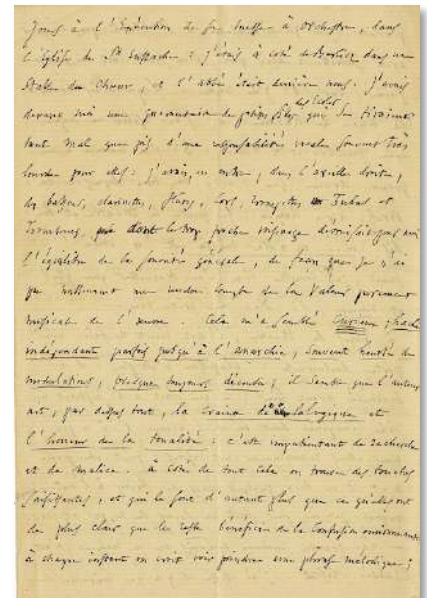 jours à l'Exécution de sa messe à Orchestre, dans
l'Eglise de St Eustache : j'étais à côté de Berlioz dans une
Stalle du Chœur, et l'abbé était derrière nous. J'avais
devant moi une quarantaine de petites filles des Ecoles qui se tiraient
tant mal que pis d'une responsabilité vocale souvent très
lourde pour elles : j'avais, en outre, dans l'oreille droite,
les bassons, clarinettes, flûtes, cors, trompettes Tubas et
Trombones, dont le trop proche voisinage détruisait pour moi
l'équilibre de la sonorité générale, de façon que je n'ai
pu nullement me rendre compte de la valeur purement
musicale de l'œuvre. Cela m'a semblé curieux, haché
indépendant parfois jusqu'à l'anarchie, souvent heurté de
modulations, presque toujours décousu ; il semble que l'auteur
ait, par dessus tout, la crainte de la logique et
l'horreur de la tonalité : c'est impatientant de recherche
et de malice. à côté de tout cela on trouve des touches
saisissantes, et qui le sont d'autant plus que ce qu'elles ont
de plus clair que le reste bénéficie de la Confusion environnante
à chaque instant on croit voir poindre une phrase mélodique ;